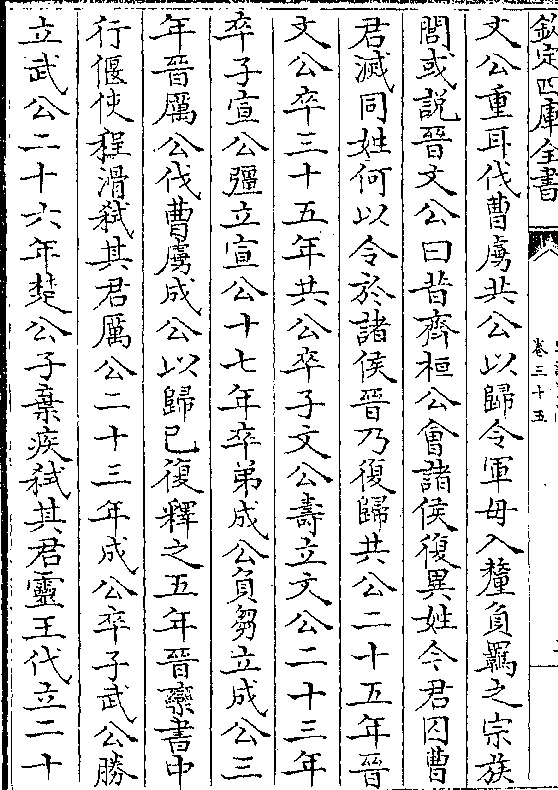 欽定四庫全書
卷三十五
文公重耳伐曹虜共公以歸令軍毋入釐負羈之宗族
閭或説晉文公曰昔齊桓公會諸侯復異姓今君囚曹
君滅同姓何以令於諸侯晉乃復歸共公二十五年晉
文公卒三十五年共公卒子文公壽立文公二十三年
卒子宣公彊立宣公十七年卒弟成公負芻立成公三
年晉厲公伐曹虜成公以歸已復釋之五年晉欒書中
行偃使程滑弑其君厲公二十三年成公卒子武公勝
立武公二十六年楚公子棄疾弑其君靈王代立二十